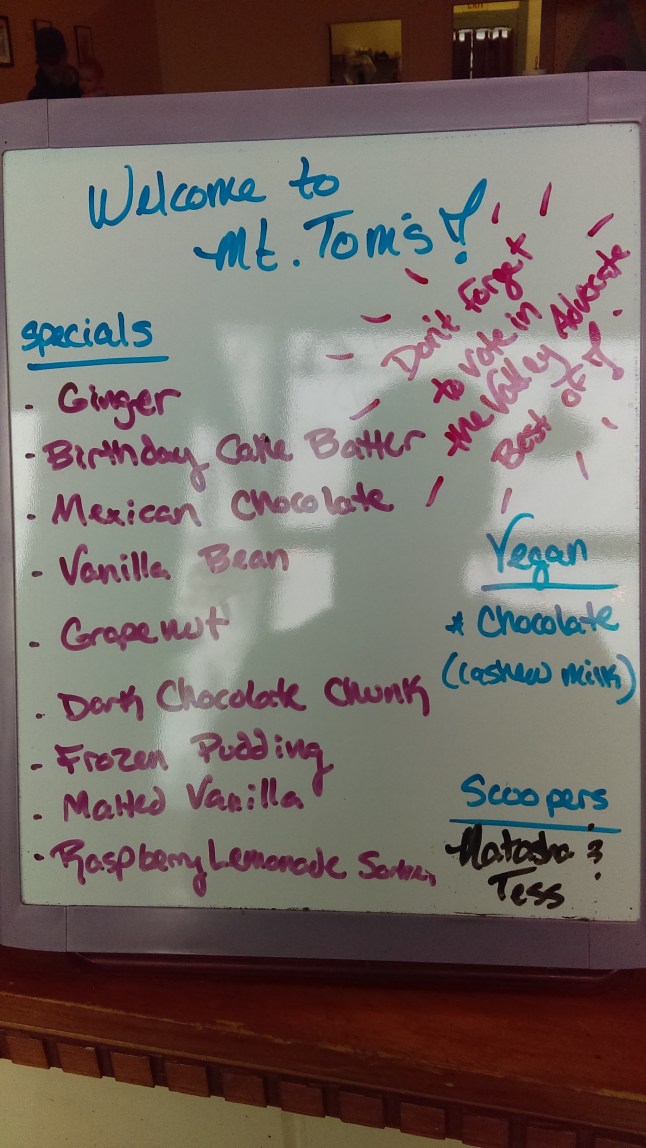 EXIT
Welcome to
Mt. Tom's!
Don't Forget
to vote in
the Valley Advocate
Best of!
Specials
- Ginger
- Birthday Cake Batter
- Mexican Chocolate
- Vanilla Bean
- Grapenut
- Dark Chocolate Chunk
- Frozen Pudding
- Malted Vanilla
- Raspberry Lemonade Sorbet
Vegan
* Chocolate
(cashew milk)
Scoopers
Natasha &
Tess